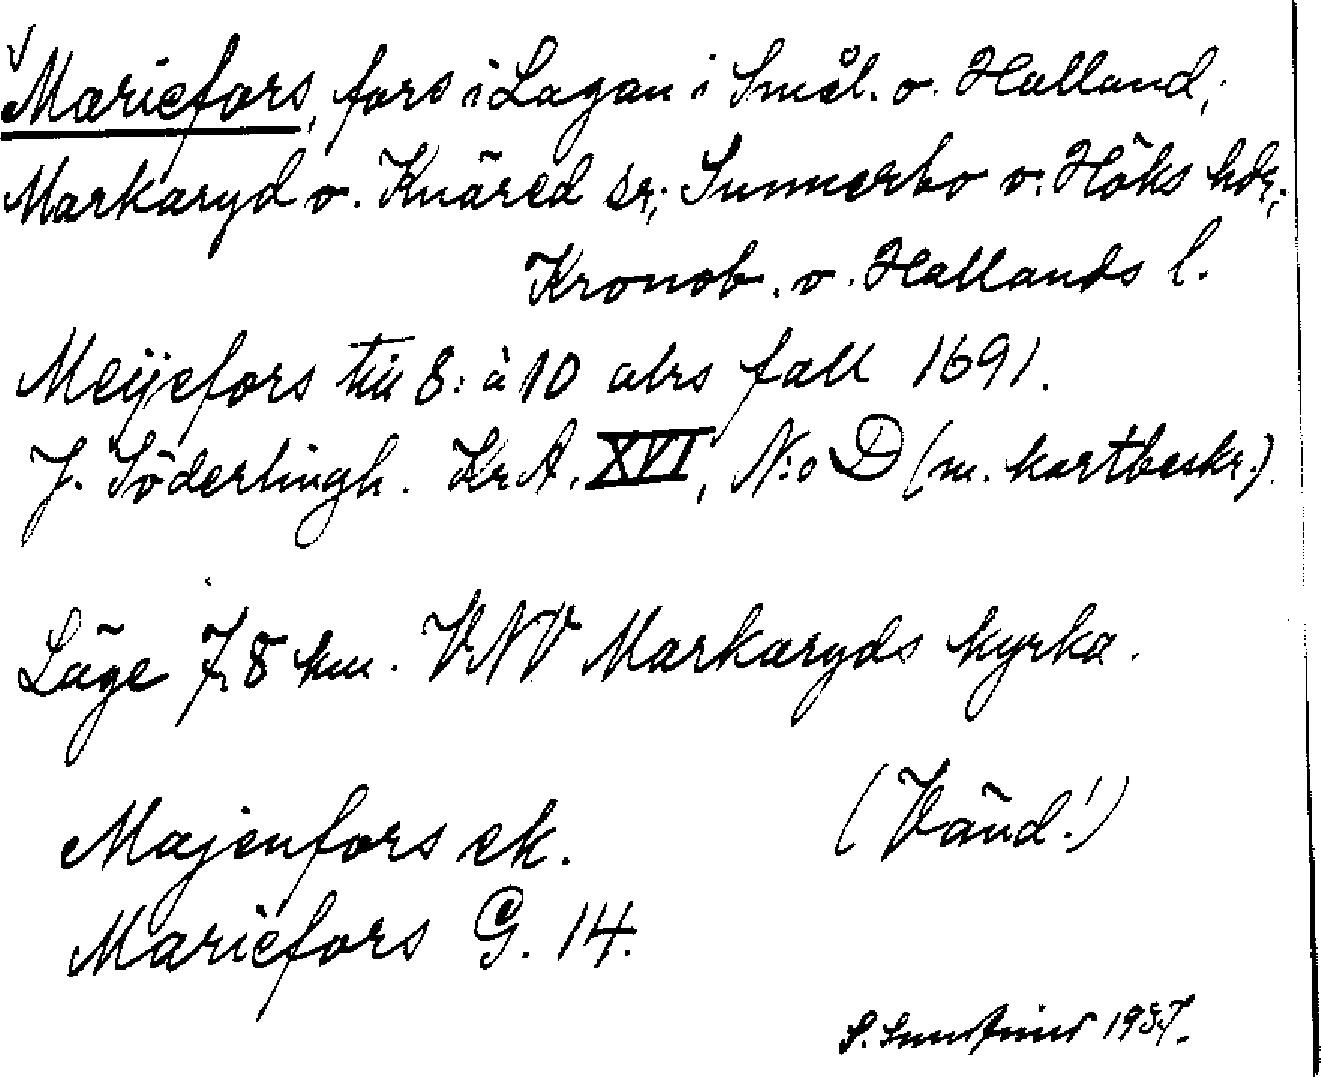 Mariefors, fors i Lagan i Smål. o. Halland;
Markaryd o. Knäred sr; Sunnerbo o. Höks hdr;
Kronob. o. Hallands l.
Meijefors till 8: à 10 alrs fall 1691.
J. Söderlingh. Kr A. XVI, N:o D (m. kartbeskr.).
Läge 7,8 km. VNV Markaryds kyrka.
(Vänd!)
Majenfors ek.
Mariefors G. 14.
S. 1937.